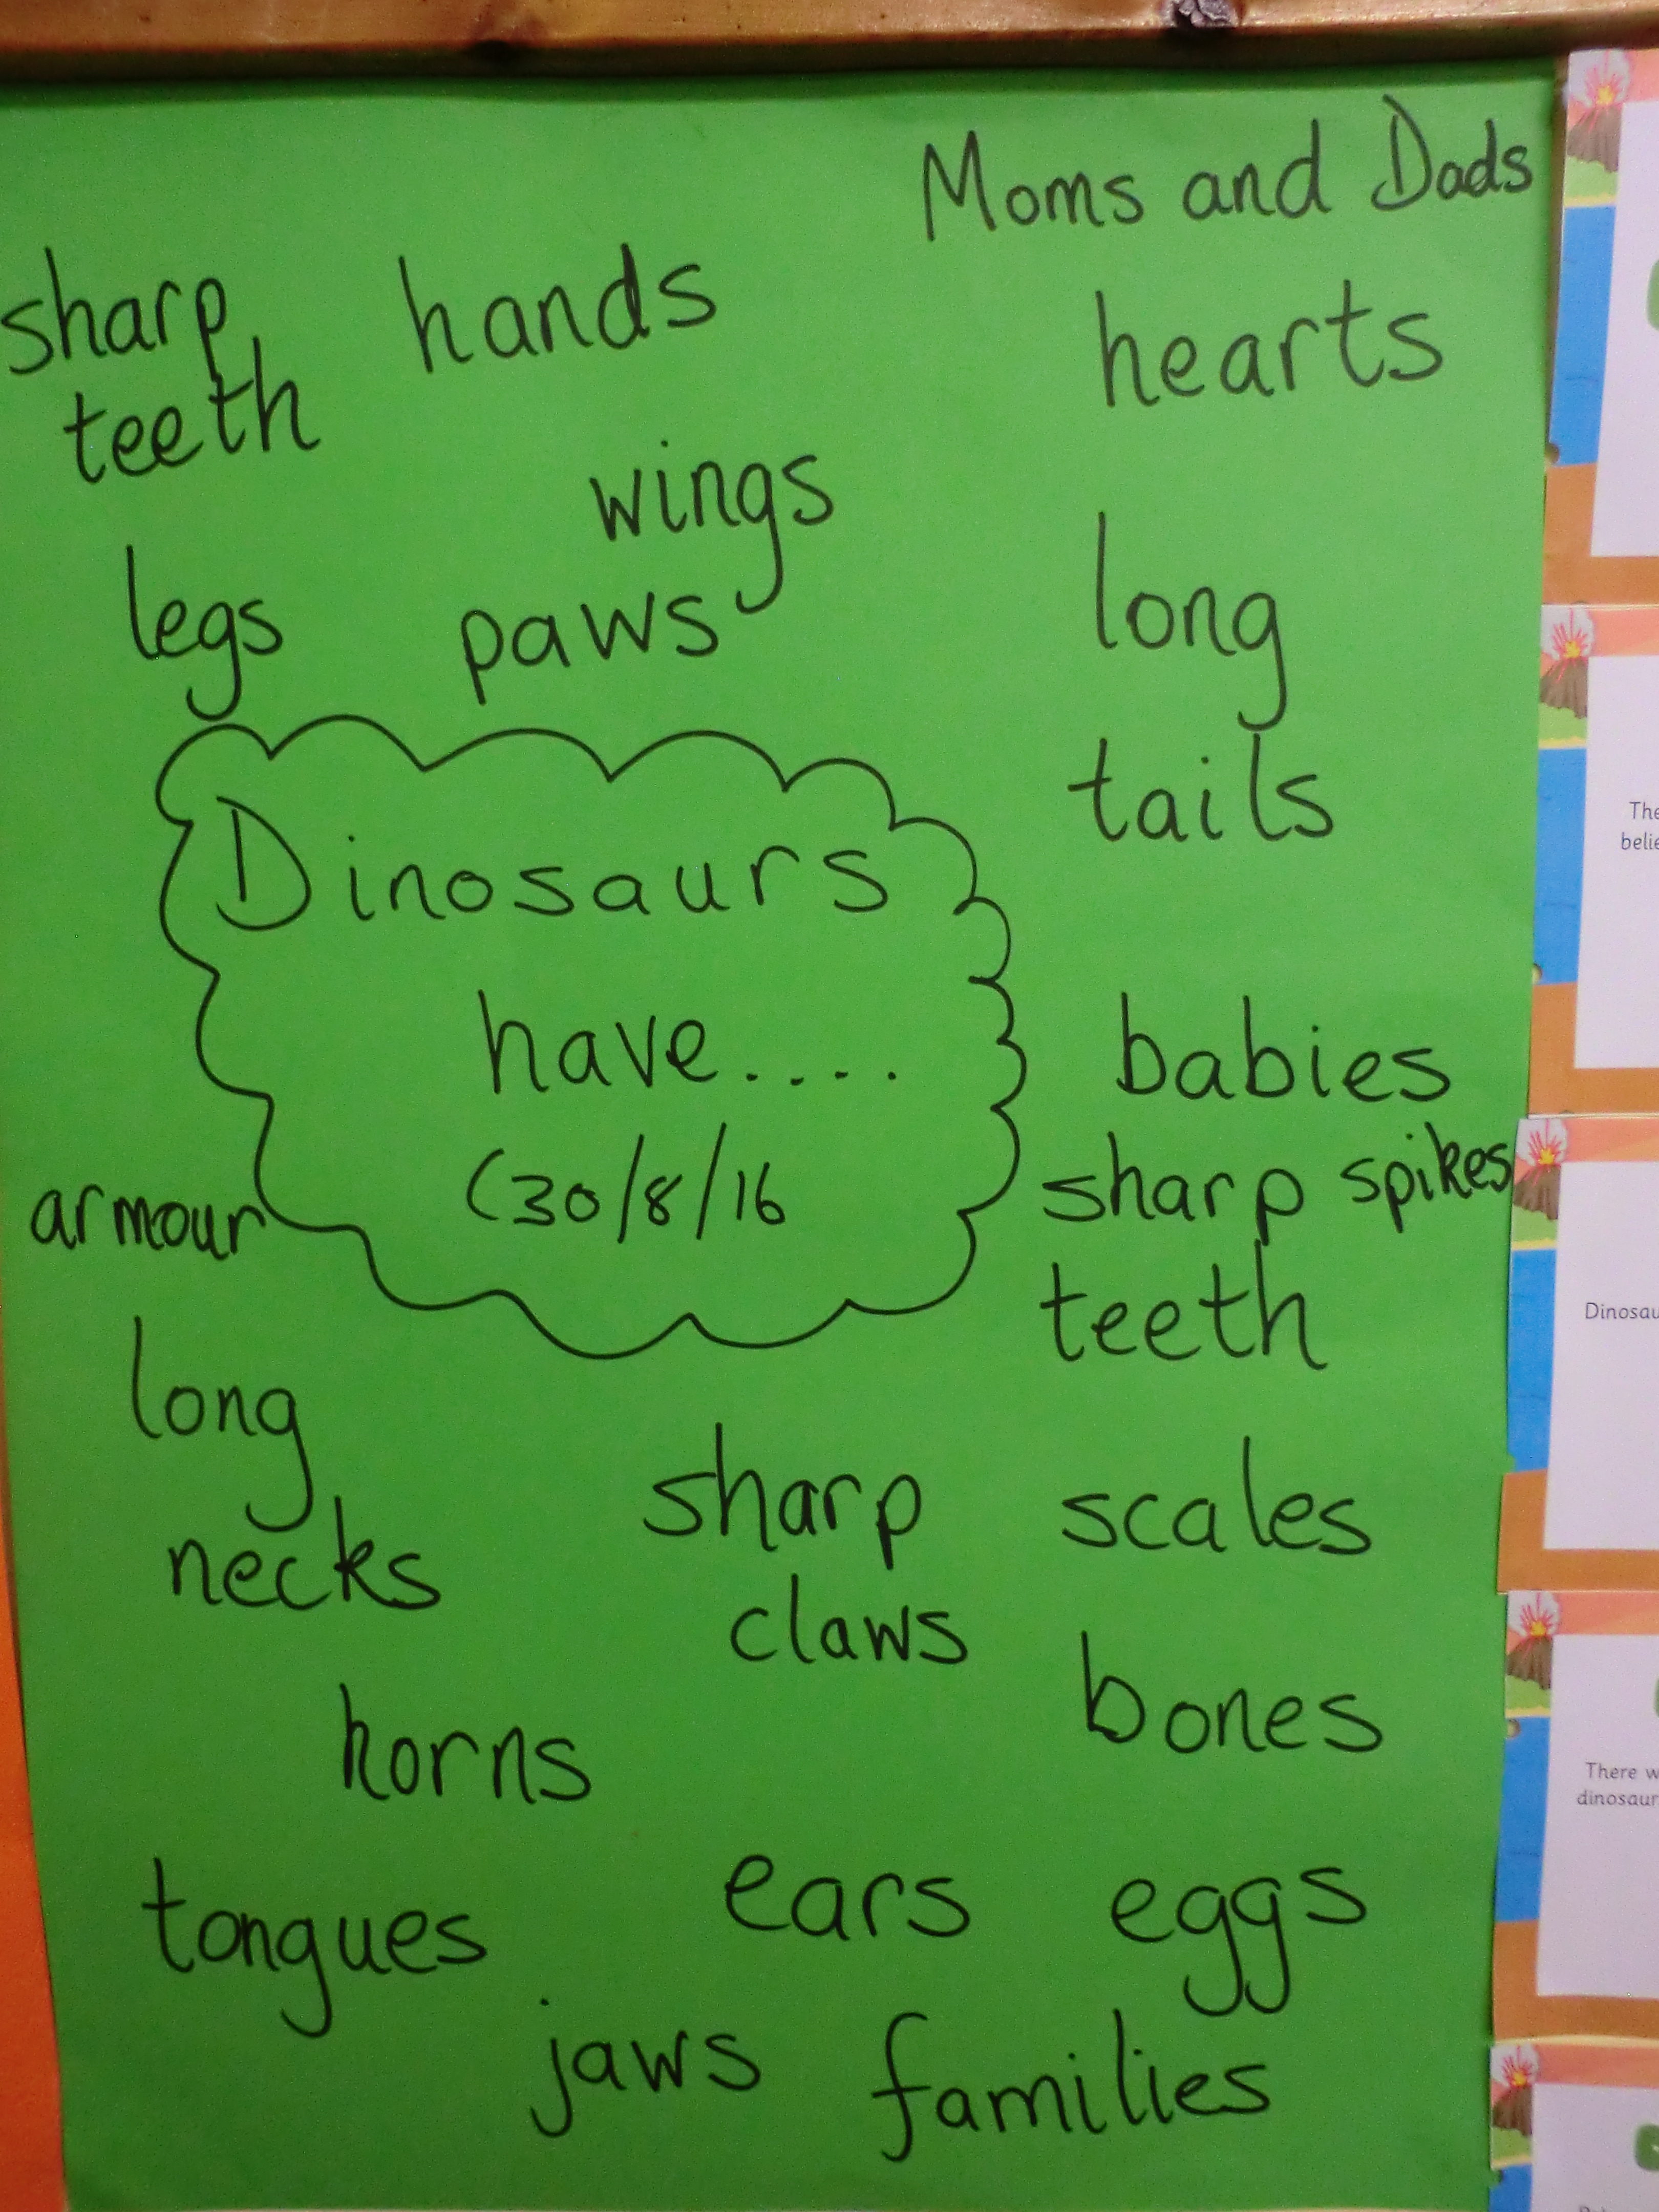 Moms and Dads
sharp
teeth
hands
hearts
wings
legs
paws
long
tails
Dinosaurs
have....
(30/8/16
babies
armour
sharp spikes
teeth
long
necks
sharp
claws
scales
bones
horns
tongues
ears
eggs
jaws
families
The
belie
Dinosau
There w
dinosaur